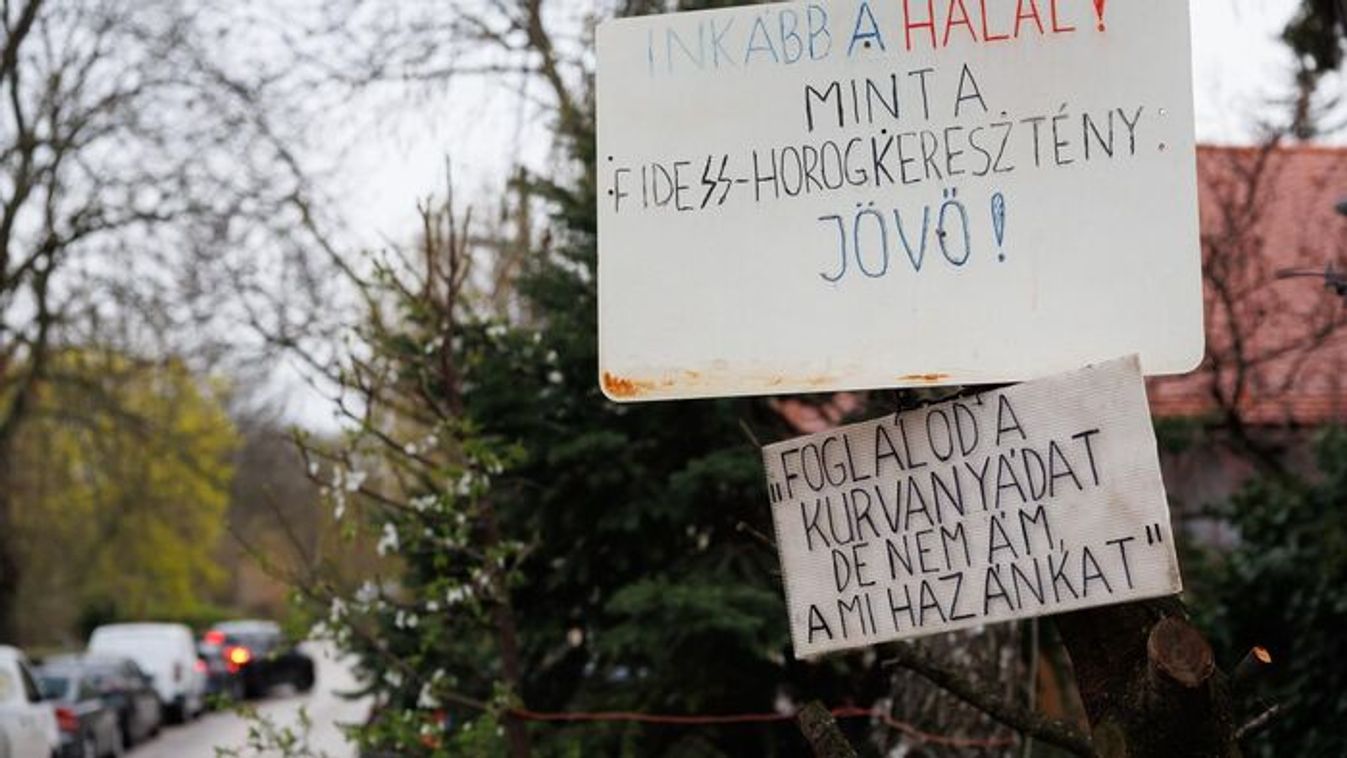 INKÁBB A HALÁL!
MINT A
FIDESS-HOROGKERESZTÉNY
JÖVŐ!
„FOGLALOD A
KURVANYÁDAT
DE NEM ÁM,
A MI HAZÁNKAT"